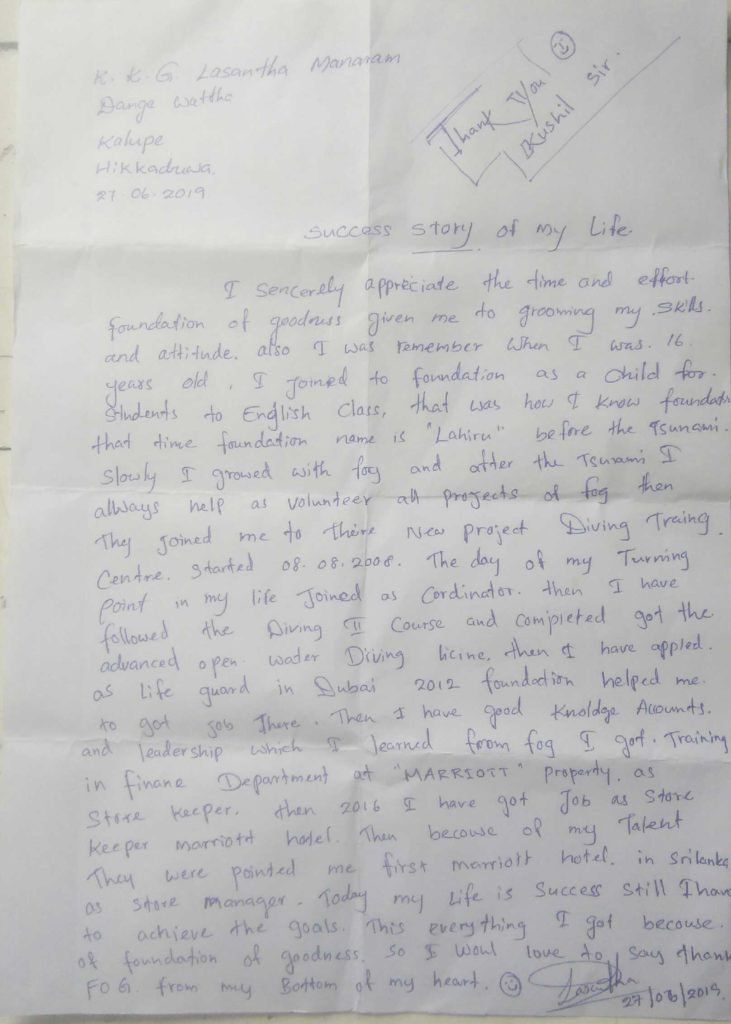 K. K. G. Lasantha Manaram
Dange wattha
Kalupe
Hikkaduwa.
27-06-2019
Thank you
Kushil Sir.
Success story of my Life
I sencerely appreciate the time and effort
foundation of goodness given me to grooming my skills.
and attitude. also I was remember when I was. 16
years old, I joined to foundation as a child for.
Students to English Class, that was how I know foundation
that time foundation name is "Lahiru" before the Tsunami.
Slowly I growed with fog and after the Tsunami I
always help as volunteer all projects of fog then
They joined me to there New project Diving Traing
Centre. Started 08.08.2008. The day of my Turning
point in my life Joined as Cordinator. then I have
followed the Diving II Course and completed got the
advanced open water Diving licine. then I have appled.
as Life guard in Dubai 2012 foundation helped me.
to got job There. Then I have good Knoldge Accounts.
and leadership which I learned from fog I got. Training
in finane Department at "MARRIOTT" property. as
Store keeper. then 2016 I have got Job as Store
keeper marriott hotel. Then becouse of my Talent
They were pointed me first marriott hotel. in Srilanka
as store manager. Today my Life is Success still I have
to achieve the goals. This everything I got becouse.
of foundation of goodness. So I woul love to say thank
FOG. from my Bottom of my heart.
Lasantha
27/06/2019.